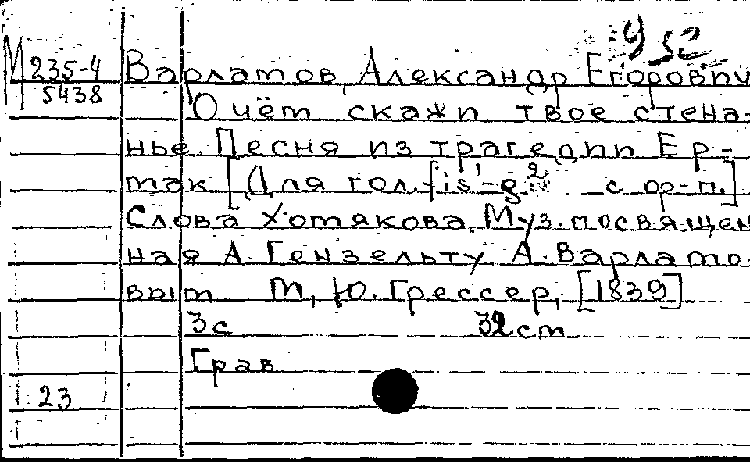 У 52
М 235-4 Варламов, Александр Егорович
5438 О чём скажи твое стена-
нье. Песня из трагедии Ер-
мак [Для гол. [is¹-g² с ор-п.]
Слова Хомякова. Муз. посвящен
ная А. Гензельту А. Варламо-
вым М., Ю. Грессер, [1839]
3с 32 см
Грав
23